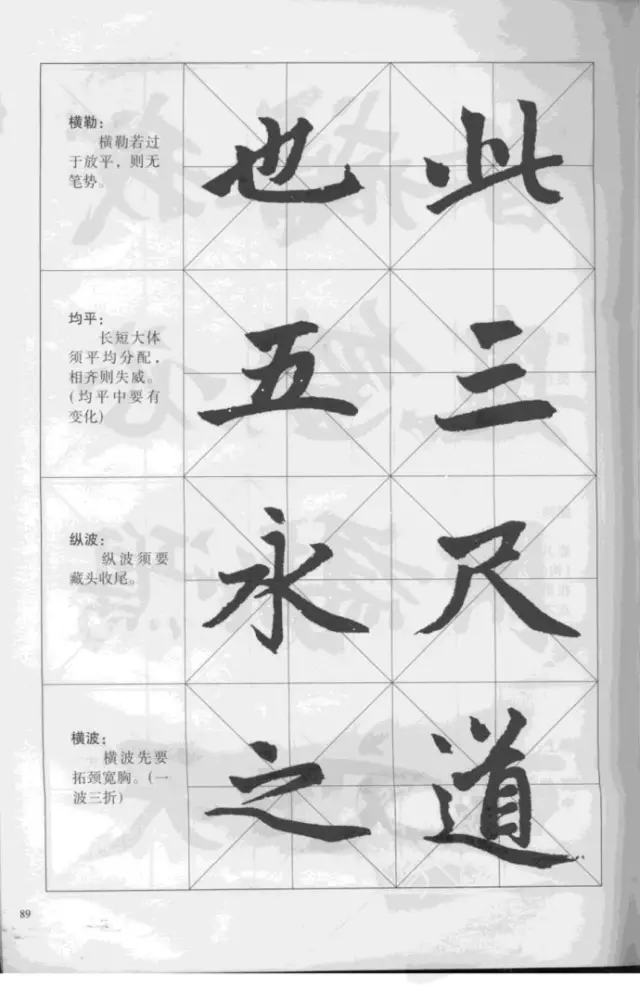 横勒：
横勒若过
于放平，则无
笔势。
也 此
均平：
长短大体
须平均分配，
相齐则失威。
(均平中要有
变化)
五 三
纵波：
纵波须要
藏头收尾。
永 尺
横波：
横波先要
拓颈宽胸。(一
波三折)
之 道
89